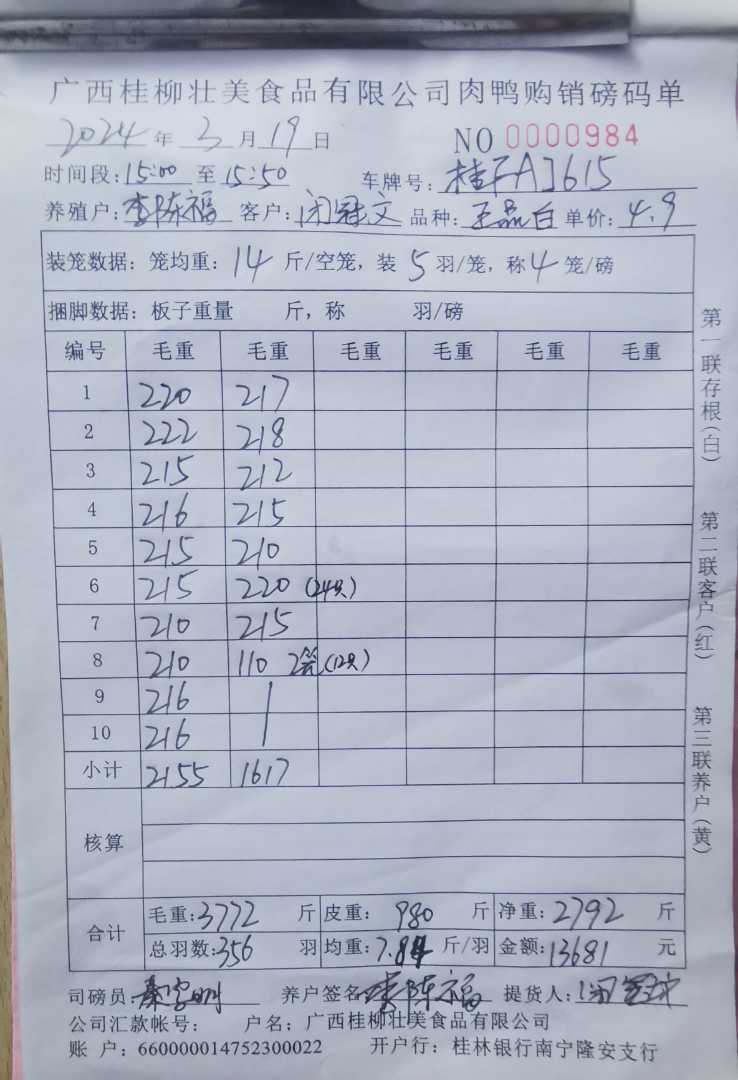 广西桂柳壮美食品有限公司肉鸭购销磅码单
2024年3月19日 NO 0000984
时间段:15:00至15:50 车牌号:桂FAJ615
养殖户:李陈福 客户:闭冠文 品种:王品白 单价:4.9
装笼数据:笼均重:14斤/空笼,装5羽/笼,称4笼/磅
捆脚数据:板子重量 斤,称 羽/磅
编号 毛重 毛重 毛重 毛重 毛重 毛重
1 220 217
2 222 218
3 215 212
4 216 215
5 215 210
6 215 220 (24只)
7 210 215
8 210 110 2笼(12只)
9 216
10 216
小计 2155 1617
核算
合计 毛重:3772斤 皮重:980斤 净重:2792斤
总羽数:356羽 均重:7.84斤/羽 金额:13681元
司磅员: 养户签名:李陈福 提货人:闭冠文
公司汇款帐号: 户名:广西桂柳壮美食品有限公司
账 户:660000014752300022 开户行:桂林银行南宁隆安支行
第一联存根(白) 第二联客户(红) 第三联养户(黄)